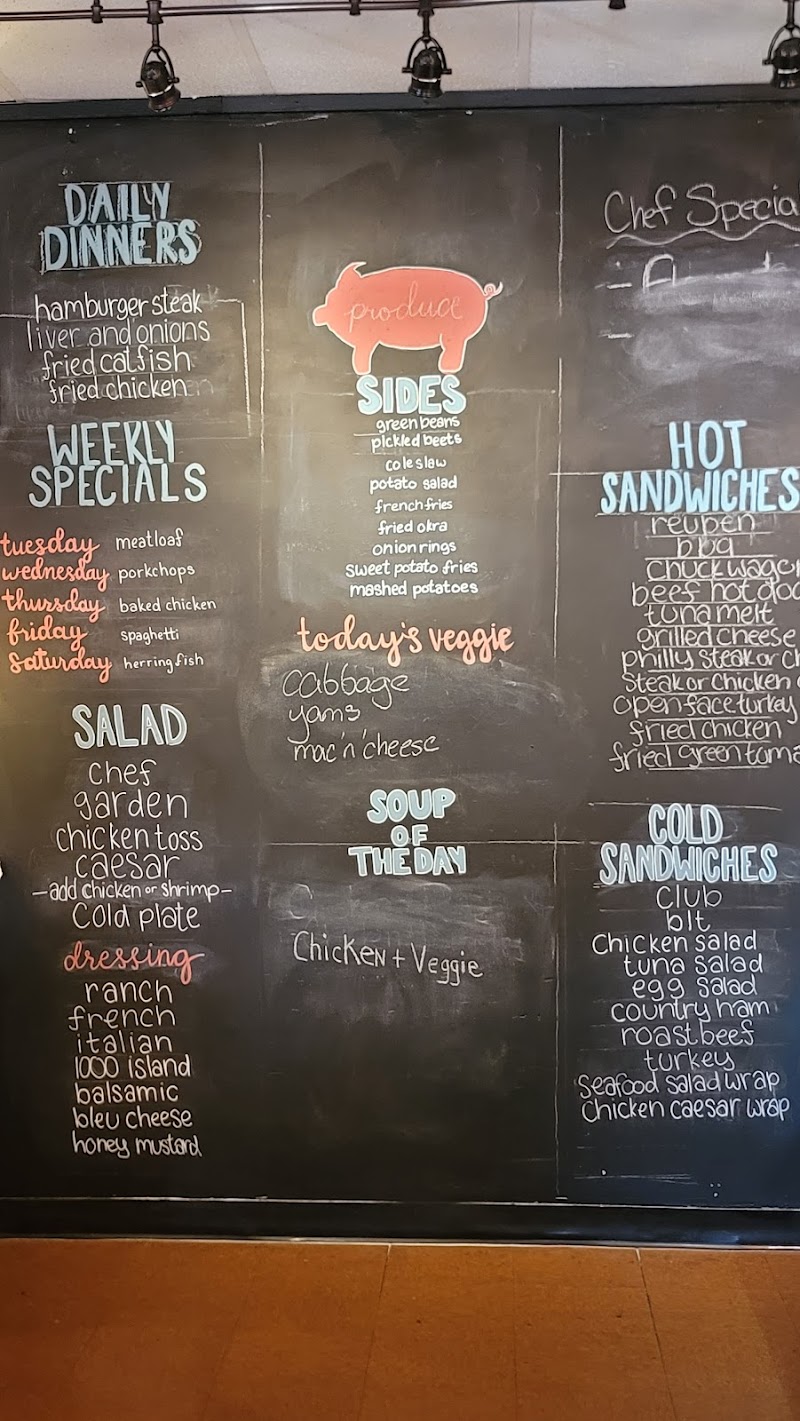 DAILY
DINNERS
hamburger steak
liver and onions
fried catfish
fried chicken
WEEKLY
SPECIALS
tuesday meatloaf
wednesday porkchops
thursday baked chicken
friday spaghetti
saturday herring fish
SALAD
chef
garden
chicken toss
caesar
-add chicken or shrimp-
cold plate
dressing
ranch
french
italian
1000 island
balsamic
bleu cheese
honey mustard
produce
SIDES
green beans
pickled beets
coleslaw
potato salad
french fries
fried okra
onion rings
sweet potato fries
mashed potatoes
today's veggie
cabbage
yams
mac'n'cheese
SOUP
OF
THE DAY
Chicken + Veggie
Chef Specia
HOT
SANDWICHES
reuben
bbq
chuckwago
beef hot do
tuna melt
grilled cheese
philly steak or ch
steak or chicken
open face turkey
fried chicken
fried green toma
COLD
SANDWICHES
club
blt
chicken salad
tuna salad
egg salad
country ham
roast beef
turkey
seafood salad wrap
chicken caesar wrap